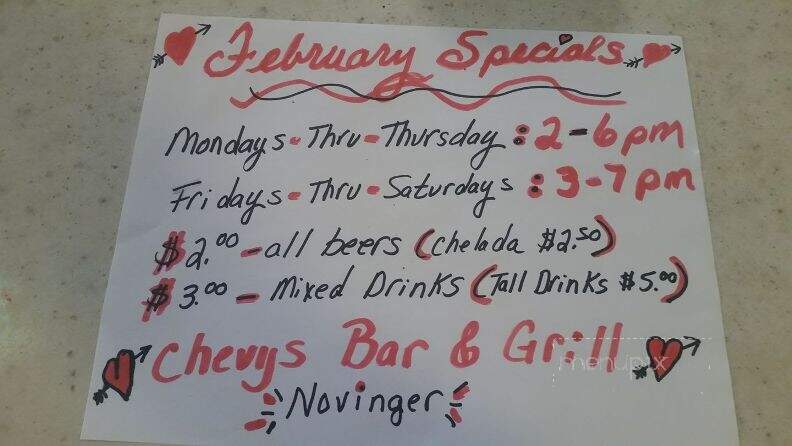 February Specials
Mondays-Thru-Thursday: 2-6pm
Fridays-Thru-Saturdays: 3-7pm
$2.00 - all beers (Chelada $2.50)
$3.00 - Mixed Drinks (Tall Drinks $5.00)
Chevys Bar & Grill
menupix
Novinger